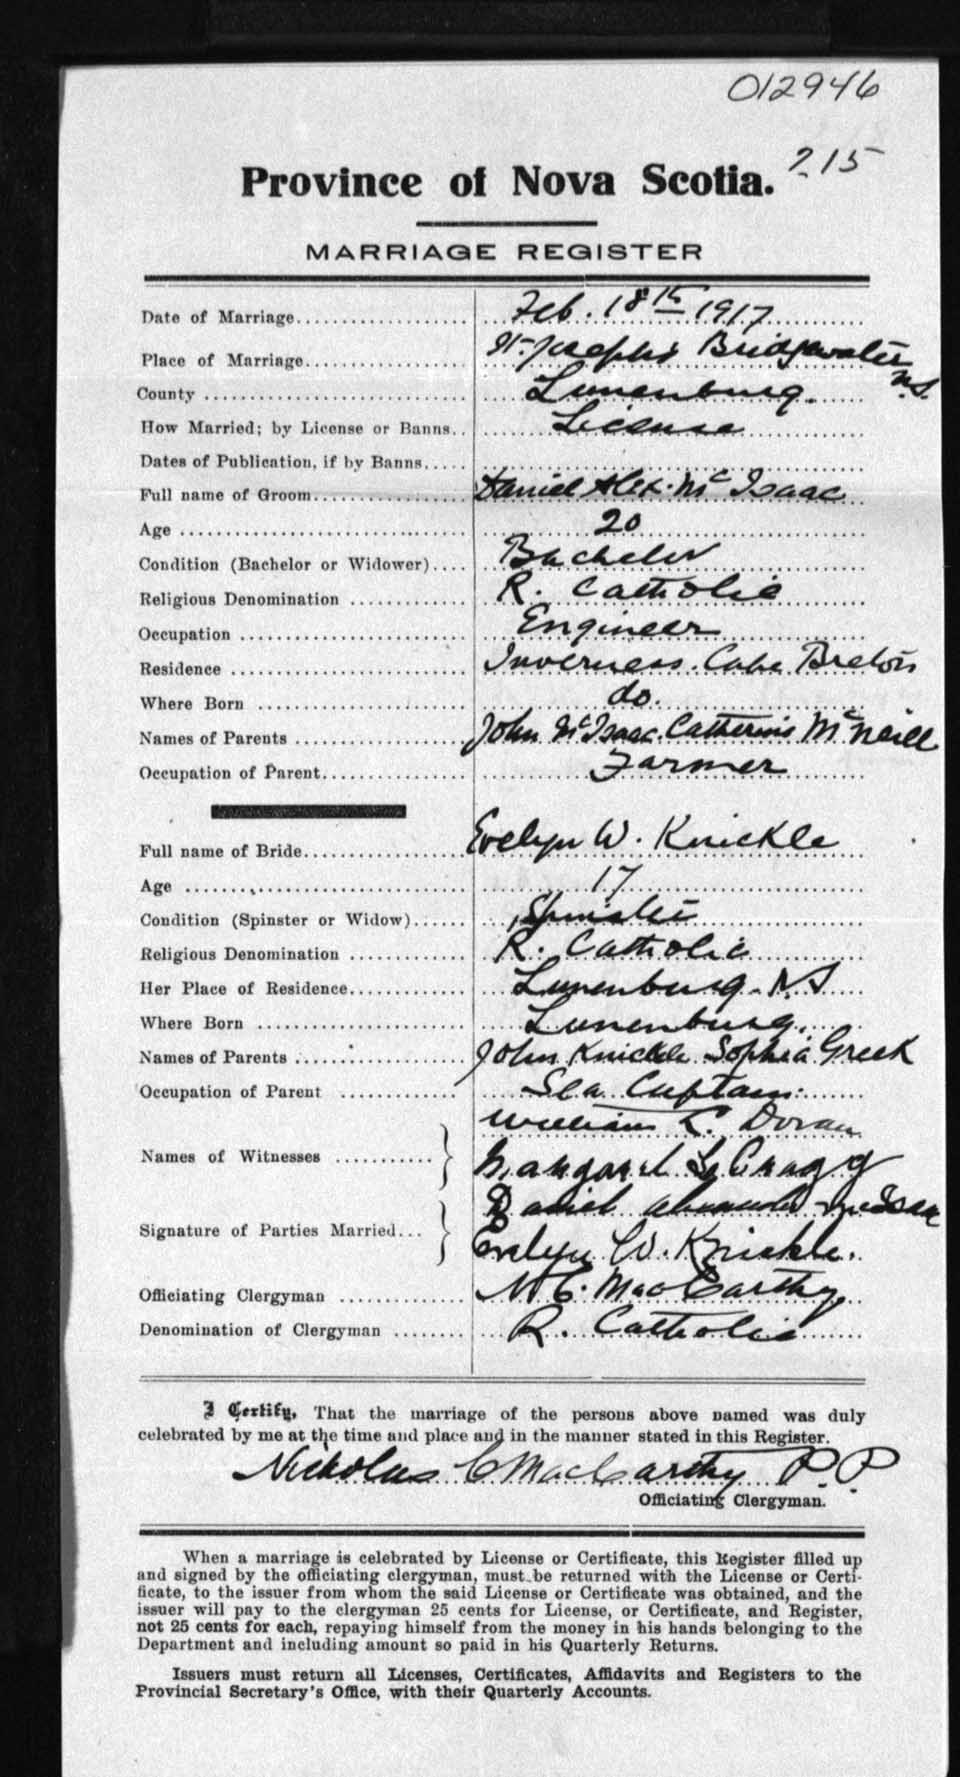 012946
215
Province of Nova Scotia.
MARRIAGE REGISTER
Date of Marriage.................... Feb. 18th 1917
Place of Marriage................... St. Joseph's Bridgewater N.S.
County ............................. Lunenburg.
How Married; by License or Banns.. License
Dates of Publication, if by Banns.....
Full name of Groom.................. Daniel Alex. McIsaac
Age ................................ 20
Condition (Bachelor or Widower).... Bachelor
Religious Denomination ............. R. Catholic
Occupation ......................... Engineer
Residence .......................... Inverness. Cape Breton
Where Born ......................... do.
Names of Parents ................... John McIsaac. Catherine McNeill
Occupation of Parent................ Farmer
Full name of Bride.................. Evelyn W. Knickle
Age ................................ 17
Condition (Spinster or Widow)...... Spinster
Religious Denomination ............. R. Catholic
Her Place of Residence.............. Lunenburg. N.S
Where Born ......................... Lunenburg.
Names of Parents ................... John Knickle Sophia Greek
Occupation of Parent ............... Sea Captain.
William L. Doran
Names of Witnesses ........... } Margaret
Daniel Alexander McIsaac
Signature of Parties Married... } Evelyn W. Knickle.
Officiating Clergyman .............. N. C. MacCarthy.
Denomination of Clergyman ........ R. Catholic
I Certify, That the marriage of the persons above named was duly
celebrated by me at the time and place and in the manner stated in this Register.
Nicholas C MacCarthy P.P
Officiating Clergyman.
When a marriage is celebrated by License or Certificate, this Register filled up
and signed by the officiating clergyman, must be returned with the License or Certi-
ficate, to the issuer from whom the said License or Certificate was obtained, and the
issuer will pay to the clergyman 25 cents for License, or Certificate, and Register,
not 25 cents for each, repaying himself from the money in his hands belonging to the
Department and including amount so paid in his Quarterly Returns.
Issuers must return all Licenses, Certificates, Affidavits and Registers to the
Provincial Secretary's Office, with their Quarterly Accounts.